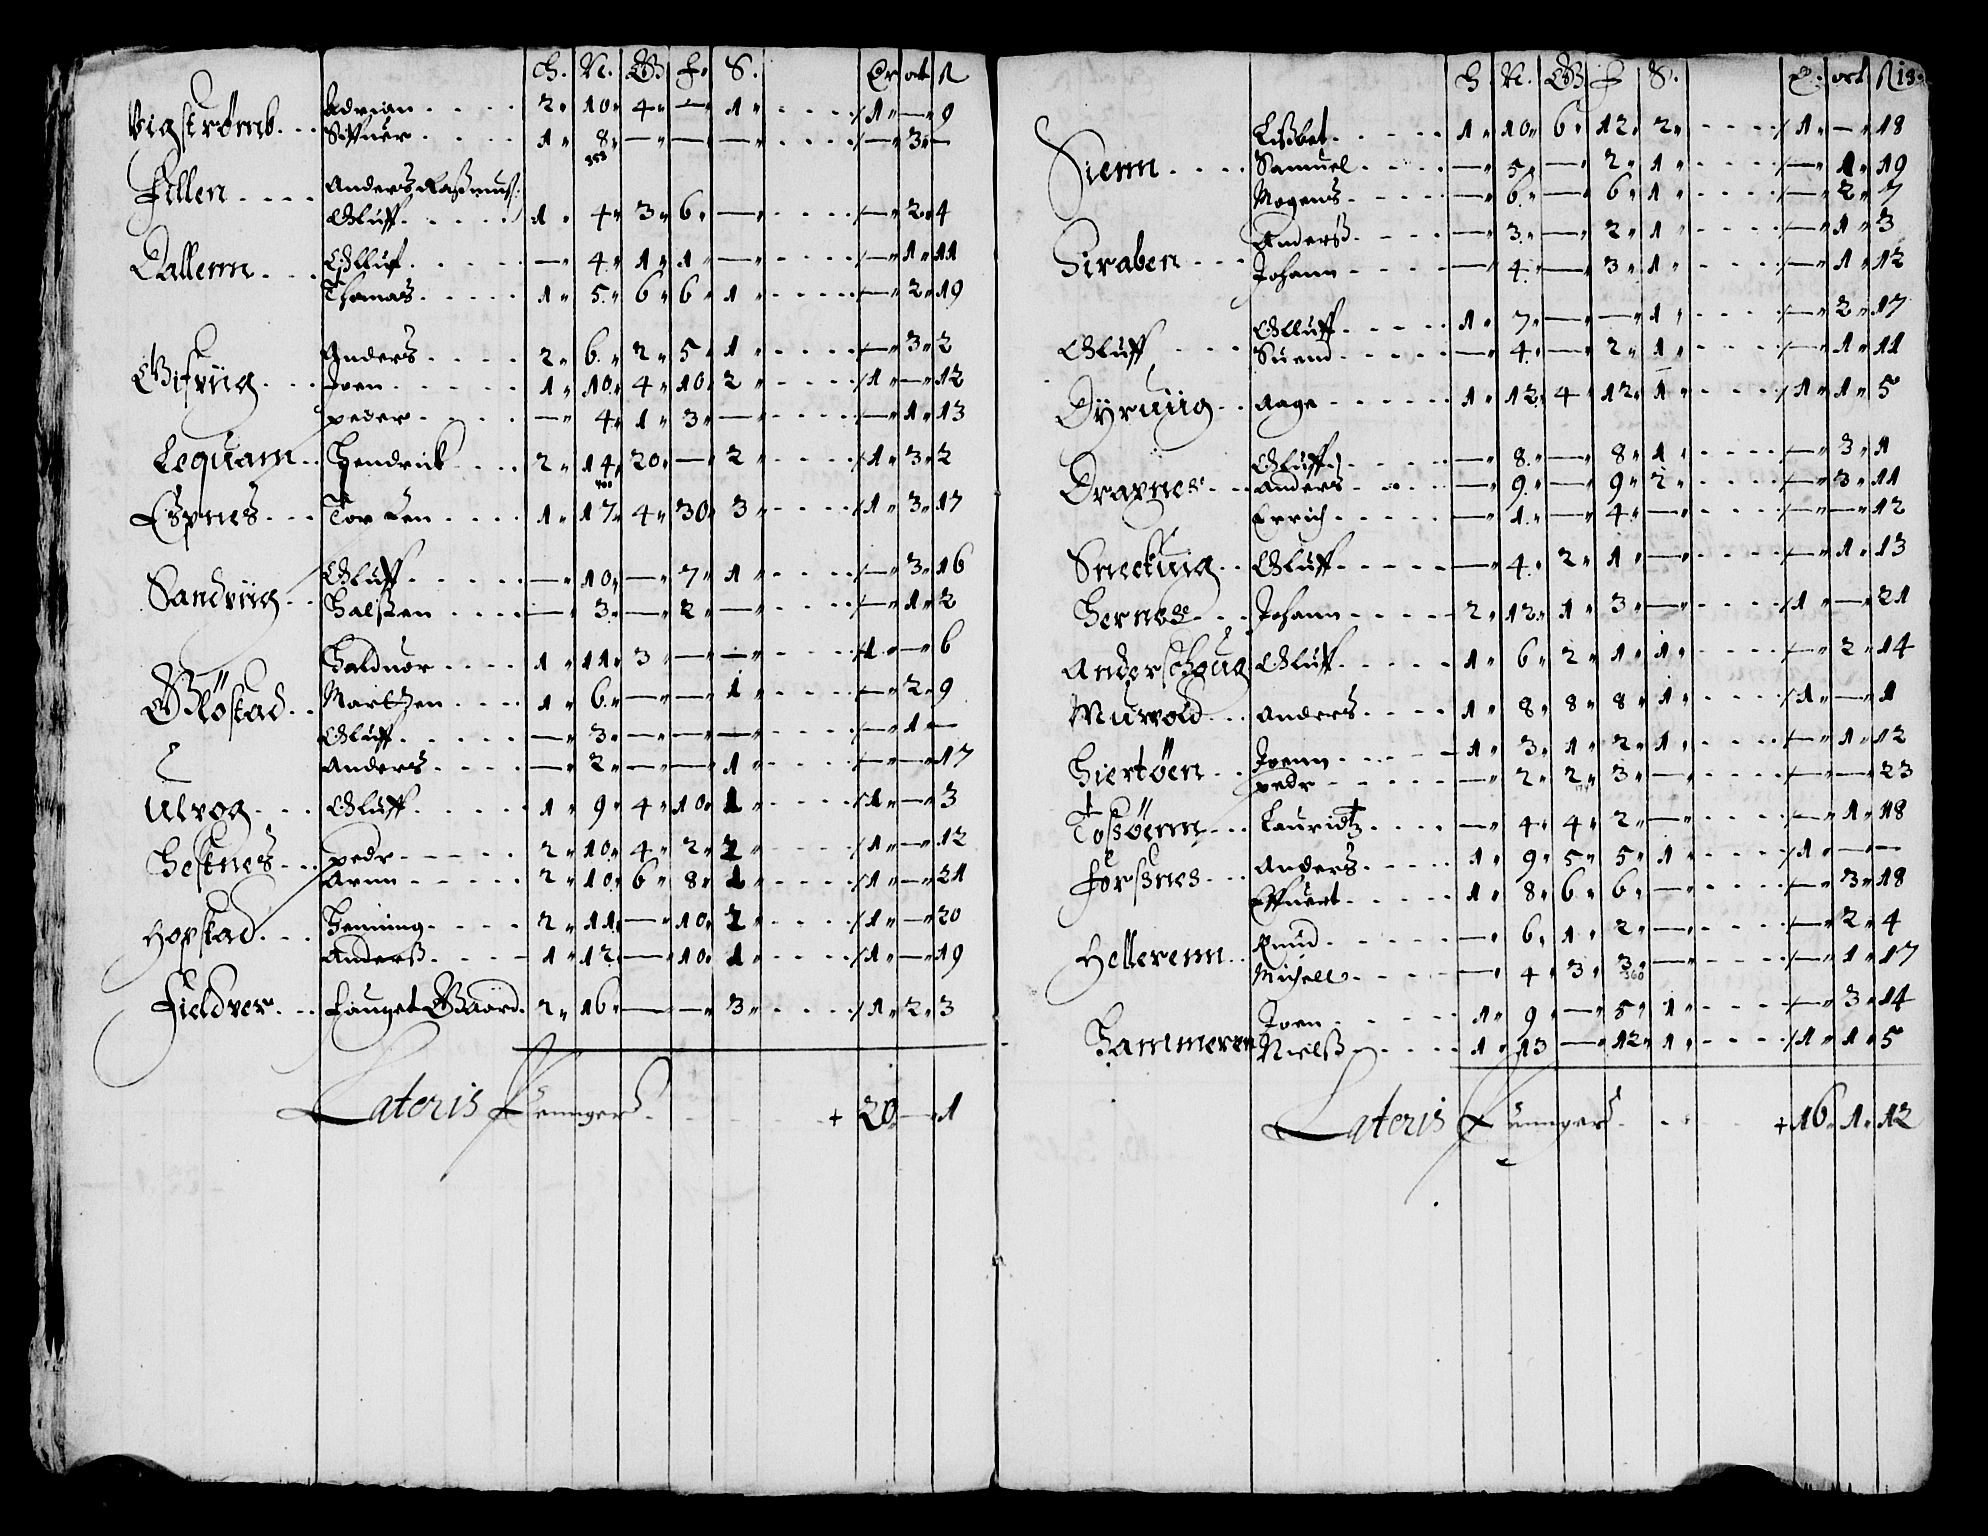 H. N. G. F. S. Dr ort ß
Vigstrømb. Adrian. 2 10 4 — 1 1 — 9
Sifuer. 1 8 — — — — 3 —
353
Fillen Anders Rasmus
Oluff. 1 4 3 6 — — 2 4
Dallemn Olluf. — 4 1 1 — — 1 11
Thomas. 1 5 6 6 1 — 2 19
Anders. 2 6 2 5 1 — 3 2
Gifuiig Iven. 1 10 4 10 2 1 — 12
peder. — 4 1 3 — — 1 13
Lequam Hendrick 2 14 20 — 2 1 3 2
400
Espnes Tor Len 1 17 4 30 3 1 3 17
Oluff — 10 — 7 1 — 3 16
Sandviig Halsten — 3 — 2 — — 1 2
Halduor 1 11 3 — — 1 — 6
Gløstad Martzen 1 6 — — 1 — 2 9
Oluff — 3 — — — — 1 —
Anders — 2 — — 1 — — 17
Ulvog Oluff 1 9 4 10 1 1 — 3
Hestnes pedr 2 10 4 2 2 1 — 12
Arnn 2 10 6 8 1 1 — 21
Hopstad Henning 2 11 — 10 2 1 — 20
Anderß 1 12 — 10 1 1 — 19
Fieldver Fouget Gaard 2 16 — — 3 1 2 3
Lateris Penngers + 20 — 1
H. N. G. F S. D. ort ß 13
Lißbet 1 10 6 12 2 1 — 18
Siemn Samuel — 5 — 2 1 — 1 19
Mogens — 6 — 6 1 — 2 7
Anderß — 3 — 2 1 — 1 3
Siraben Johann — 4 — 3 1 — 1 12
Olluff 1 7 — — 1 — 2 17
Oluff Suend — 4 — 2 1 — 1 11
Dyruiig Aage 1 12 4 12 1 1 1 5
Oluff — 8 — 8 1 — 3 1
Dravnes Anders — 9 — 9 2 — 3 11
Errich — 1 — 4 — — — 12
Sneckuiig Oluff — 4 2 1 — — 1 13
Hernes Johann 2 12 1 3 — 1 — 21
Anderschoug Oluff 1 6 2 1 1 — 2 14
Murvold Anders 1 8 8 8 1 1 — 1
Ivenn 1 3 1 2 1 — 1 12
Hiertöen pedr — 2 2 3 — — — 23
Toßöenn Lauridtz — 4 4 2 — — 1 18
Forßnes Anders 1 9 5 5 1 1 — —
Effuert 1 8 6 6 — — 3 18
Knud — 6 1 2 — — 2 4
Hellerenn Michell — 4 3 3 — — 1 17
360
Iven 1 9 — 5 1 — 3 14
Hammeren Nielß 1 13 — 12 1 1 1 5
Lateris Penngers + 16 1 12